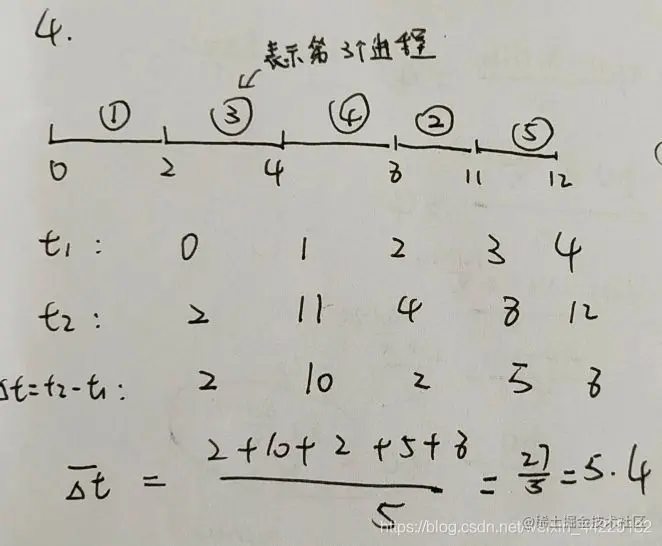 4.
表示第3个进程
① ③ ④ ② ⑤
0 2 4 8 11 12
t₁: 0 1 2 3 4
t₂: 2 11 4 8 12
Δt=t₂-t₁: 2 10 2 5 8
Δt̄ = (2+10+2+5+8)/5 = 27/5 = 5.4
@稀土掘金技术社区